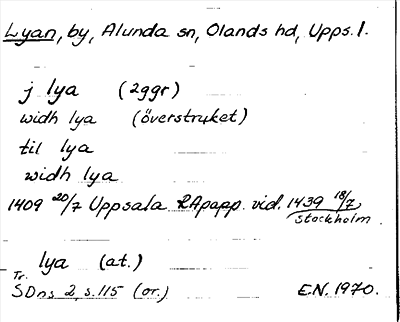 Lyan, by, Alunda sn, Olands hd, Upps. l.
j lya (2ggr)
widh lya (överstruket)
til lya
widh lya
1409 20/7 Uppsala RApapp. vid. 1439 18/7,
Stockholm
lya (at.)
Tr.
SDns 2, s. 115 (or.) E.N. 1970.